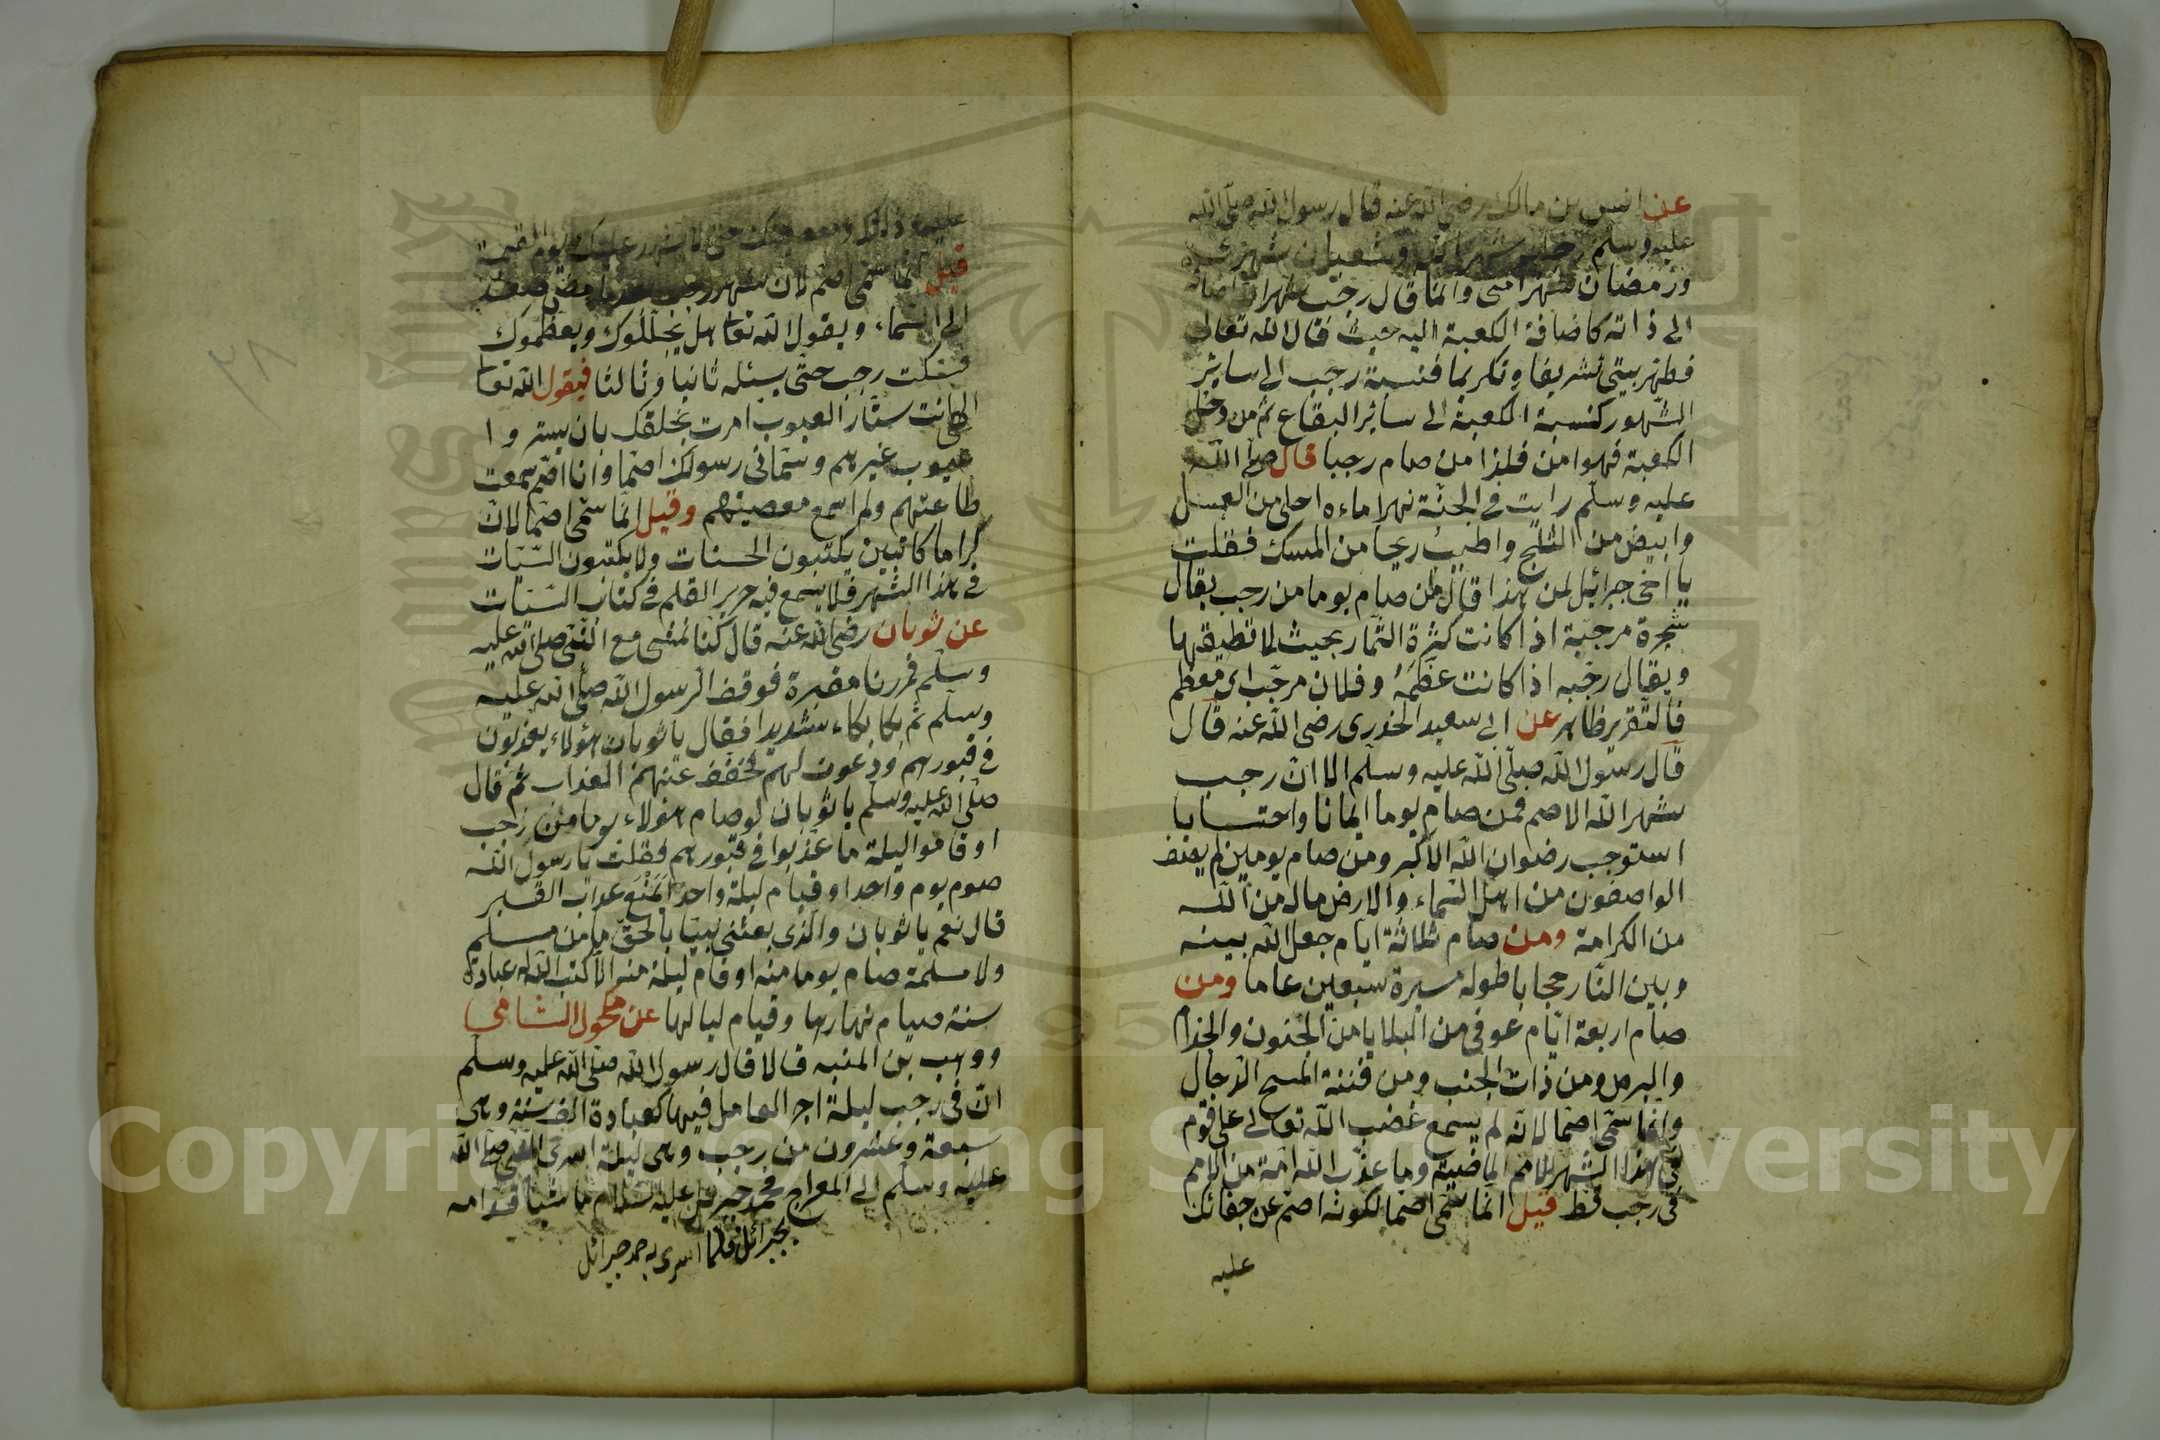 عن انس بن مالك رضي الله عنه قال رسول الله صلى الله
عليه وسلم رجب شهر الله وشعبان شهرى
ورمضان شهر امتى وانما قال رجب شهر الله اضافة
الى ذاته كاضافة الكعبة اليه حيث قال الله تعالى
فطهر بيتى تشريفا وتكريما فنسبة رجب الى سائر
الشهور كنسبة الكعبة الى سائر البقاع ثم من دخل
الكعبة فهو امن فلذا من صام رجبا قال صلى الله
عليه وسلم رايت في الجنة نهرا ماءه احلى من العسل
وابيض من الثلج واطيب ريحا من المسك فقلت
يا اخى جبرائيل لمن هذا قال لمن صام يوما من رجب يقال
شجرة مرجبة اذا كانت كثرة الثمار بحيث لا تطيقها
ويقال رجبه اذا كانت عظمه وفلان مرجب اى معظم
فالتقرير ظاهر عن ابى سعيد الخدرى رضى الله عنه قال
قال رسول الله صلى الله عليه وسلم الا ان رجب
شهر الله الاصم فمن صام يوما ايمانا واحتسابا
استوجب رضوان الله الاكبر ومن صام يومين لم يصف
الواصفون من اهل السماء والارض ماله من الله
من الكرامة ومن صام ثلاثة ايام جعل الله بينه
وبين النار حجابا طوله مسيرة سبعين عاما ومن
صام اربعة ايام عوفى من البلايا من الجنون والجذام
والبرص ومن ذات الجنب ومن فتنة المسح الدجال
وانما سمى اصما لانه لم يسمع غضب الله تعالى على قوم
في هذا الشهر للامم الماضية وما عذب الله امة من الامم
في رجب قط قيل انما سمى اصما لكونه اصم عن جفائك
عليه
عليه وذلك ومعصيتك حتى لا يشهد عليك يوم القيمة
قيل انما سمى اصم لان شهر رجب اذا مضى صعد
الى السماء ويقول الله تعا هل يجللوك ويعظموك
فسكت رجب حتى يسئله ثانيا وثالثا فيقول الله تعا
الهى انت ستار العيوب امرت بخلقك بان يستروا
عيوب غيرهم وسمانى رسولك اصما وانا اصم سمعت
طاعتهم ولم اسمع معصيتهم وقيل انما سمى اصما لان
كراما كاتبين يكتبون الحسنات ولا يكتبون السيات
في هذا الشهر فلا يسمع فيه صرير القلم في كتاب السيات
عن ثوبان رضى الله عنه قال كنا نمشى مع النبى صلى الله عليه
وسلم فمررنا مقبرة فوقف الرسول الله صلى الله عليه
وسلم ثم بكا بكاء شديدا فقال يا ثوبان هؤلاء يعذبون
في قبورهم ودعوت لهم فخفف عنهم العذاب ثم قال
صلى الله عليه وسلم يا ثوبان لو صام هؤلاء يوما من رجب
او قاموا ليلة ما عذبوا في قبورهم فقلت يا رسول الله
صوم يوم واحد او قيام ليلة واحد يمنع عذاب القبر
قال نعم يا ثوبان والذى بعثنى نبيا بالحق ما من مسلم
ولا مسلمة صام يوما منه او قام ليلة منه الا كتب الله له عبادة
سنة صيام نهارها وقيام ليالها عن مكحول الشامى
ووهب بن المنبه قالا قال رسول الله صلى الله عليه وسلم
ان فى رجب ليلة اجر العامل فيها كعبادة الف سنة وهى
سبعة وعشرون من رجب وهى ليلة اسرى النبى صلى الله
عليه وسلم الى المعراج فحمد جبرئيل عليه السلام ماشيا قدامه
بجبرائل فلما اسرى به حمد جبرائل
Copyright © King Saud University